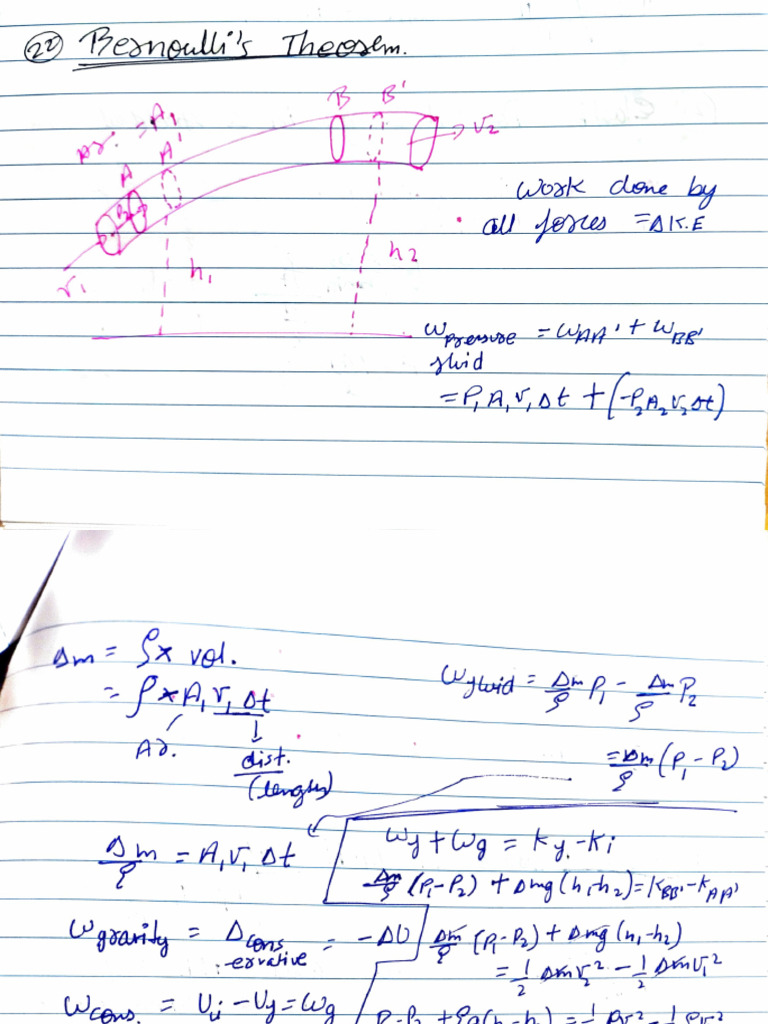 22 Bernoulli's Theorem.
Ar. = A₁
A A'
B B'
v₂
v₁
h₁
h₂
Work done by
all forces = ΔK.E
W pressure = W_AA' + W_BB'
fluid
= P₁A₁v₁Δt + (-P₂A₂v₂Δt)
Δm = ρ × vol.
= ρ × A₁v₁Δt
Ar. dist.
(length)
W fluid = Δm/ρ P₁ - Δm/ρ P₂
= Δm/ρ (P₁ - P₂)
Δm/ρ = A₁v₁Δt
W_f + W_g = K_f - K_i
Δm/ρ (P₁-P₂) + Δmg (h₁-h₂) = K_BB' - K_AA'
W gravity = Δ cons = -ΔU
-ervative
Δm/ρ (P₁-P₂) + Δmg (h₁-h₂)
= 1/2 Δmv₂² - 1/2 Δmv₁²
W cons. = U_i - U_f = W_g
P₁-P₂ + ρg(h₁-h₂) = 1/2 ρv₂² - 1/2 ρv₁²